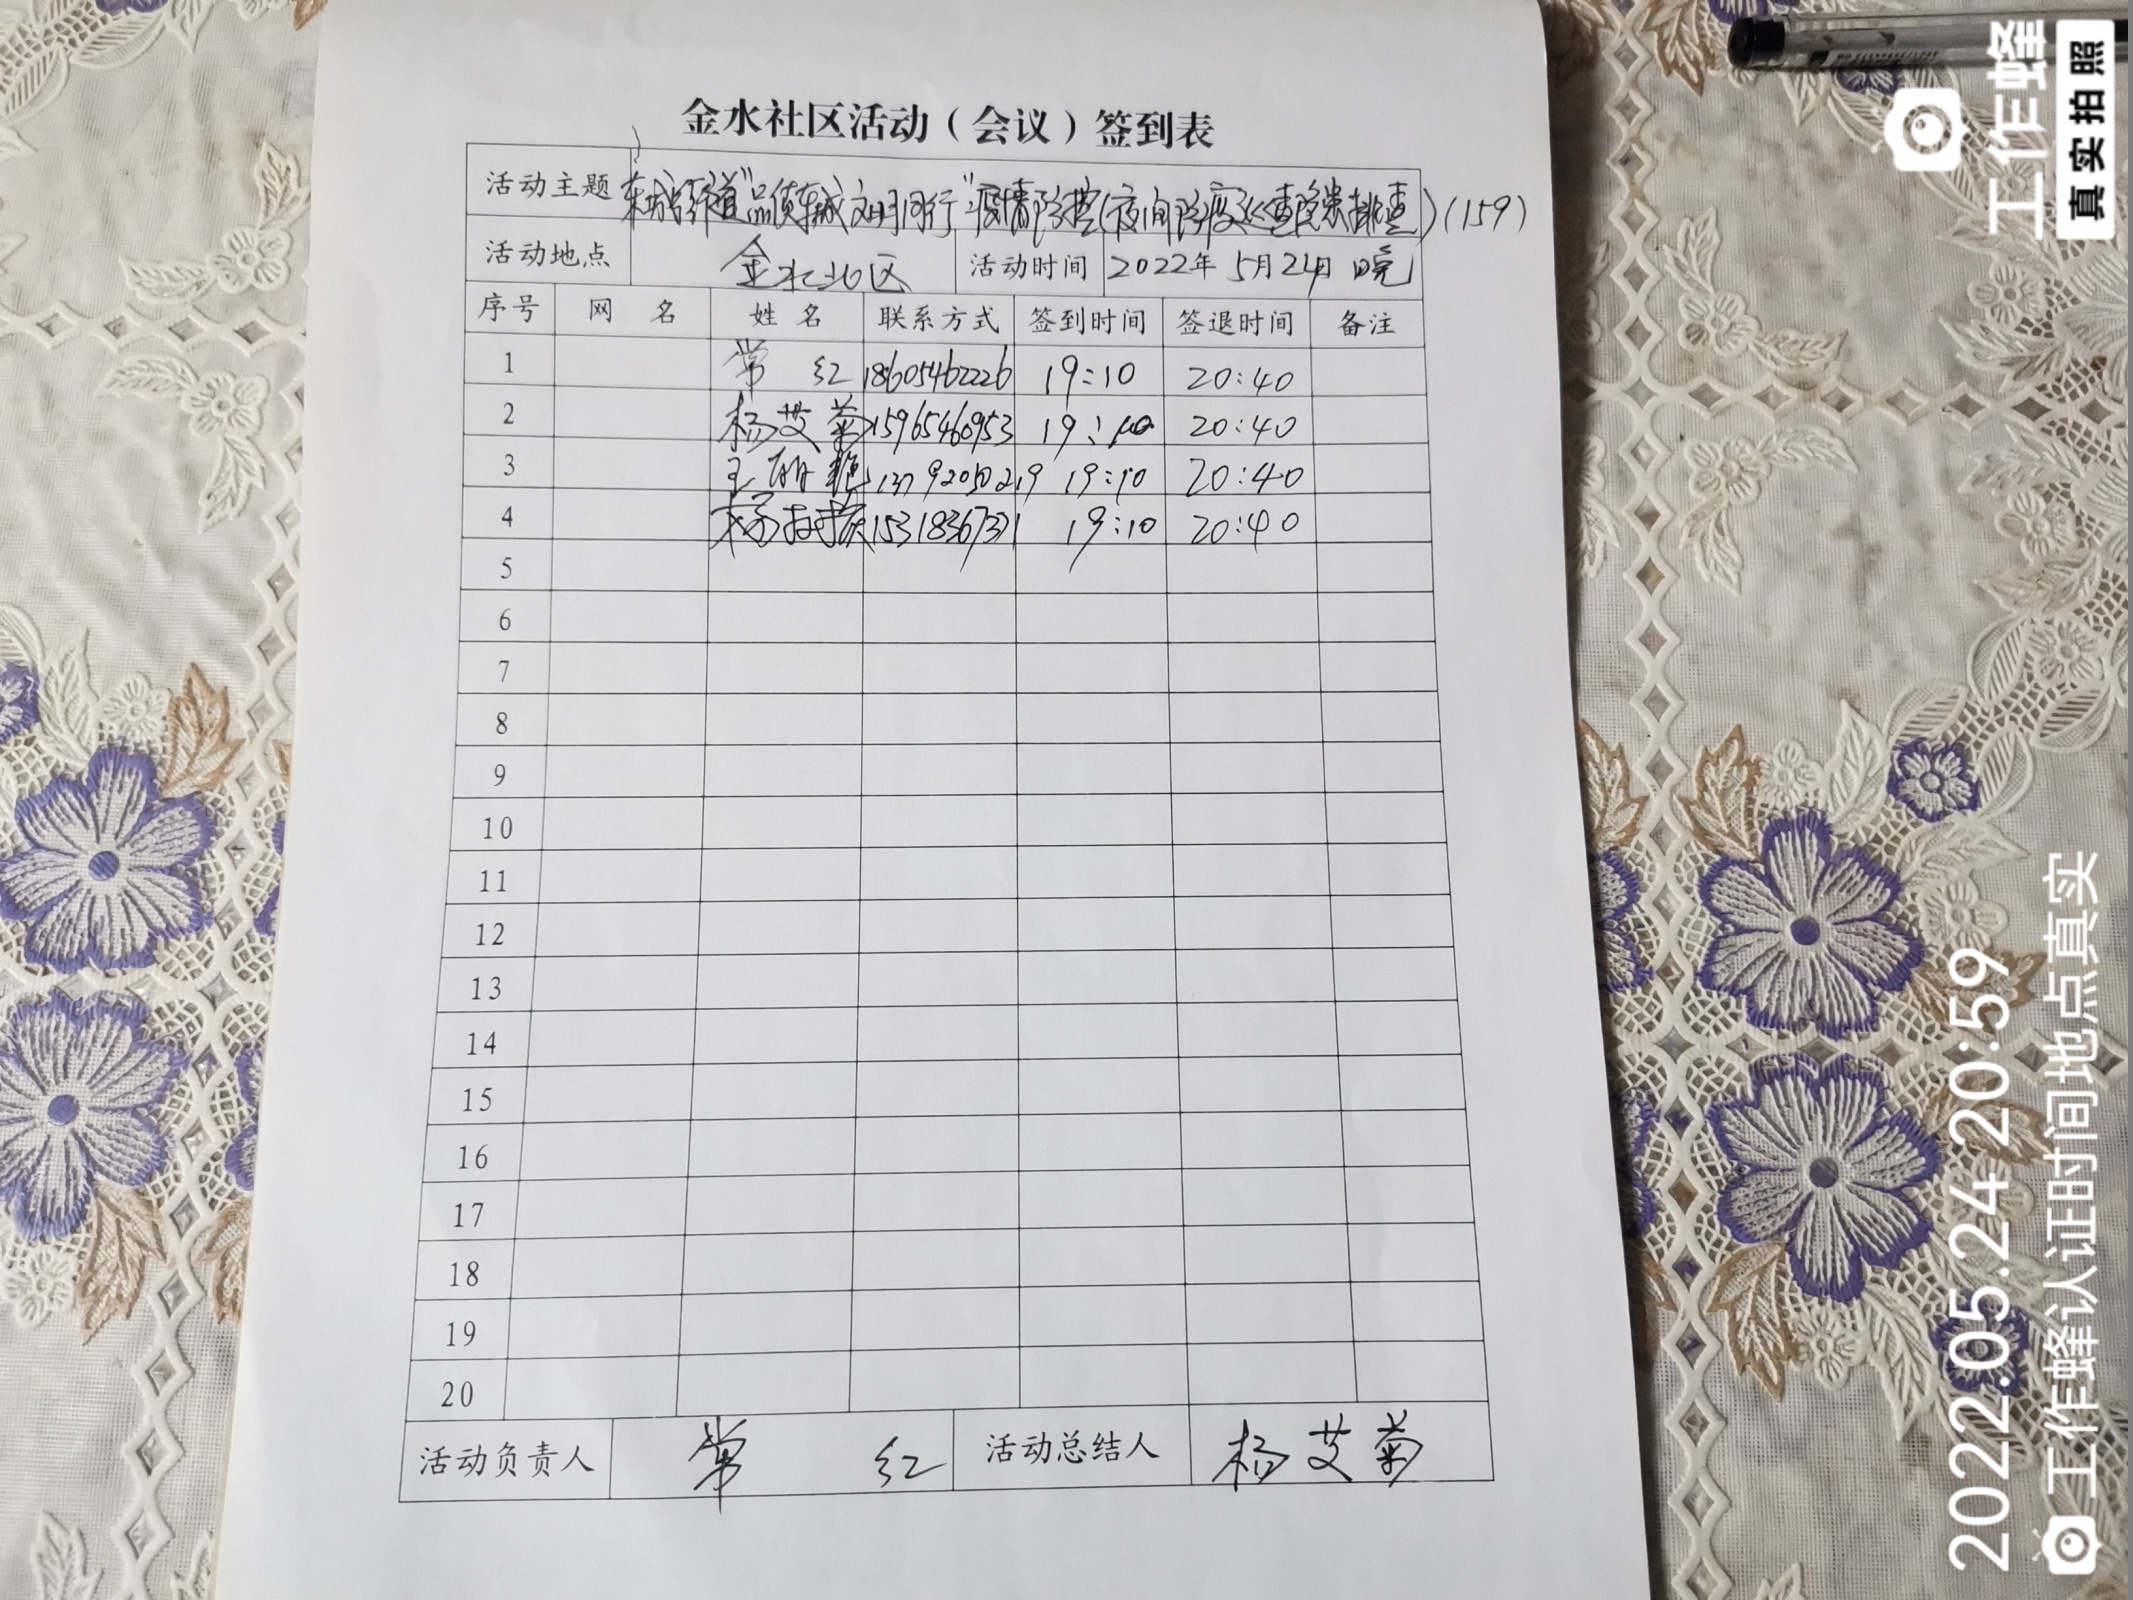 金水社区活动（会议）签到表
活动主题 东城街道"品质东城 文明同行"疫情防控(夜间防疫巡查隐患排查)(159)
活动地点 金水北区 活动时间 2022年5月24日 晚
序号 网 名 姓 名 联系方式 签到时间 签退时间 备注
1 常 红 18605462226 19:10 20:40
2 杨艾菊 15965460953 19:10 20:40
3 王丽艳 13792050219 19:10 20:40
4 杨 19:10 20:40
5
6
7
8
9
10
11
12
13
14
15
16
17
18
19
20
活动负责人 常 红 活动总结人 杨艾菊
工作蜂
真实拍照
2022.05.24 20:59
工作蜂认证时间地点真实